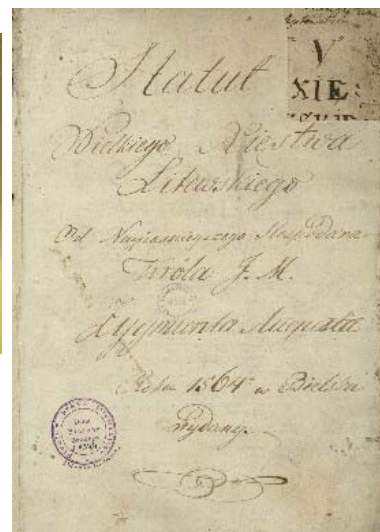 V
XIE
Statut
Wielkiego Xięstwa
Litewskiego
Od Nayiasnieyszego Hospodara
Króla J. M.
Zygmunta Augusta
Roku 1564 w Bielsku
Wydany